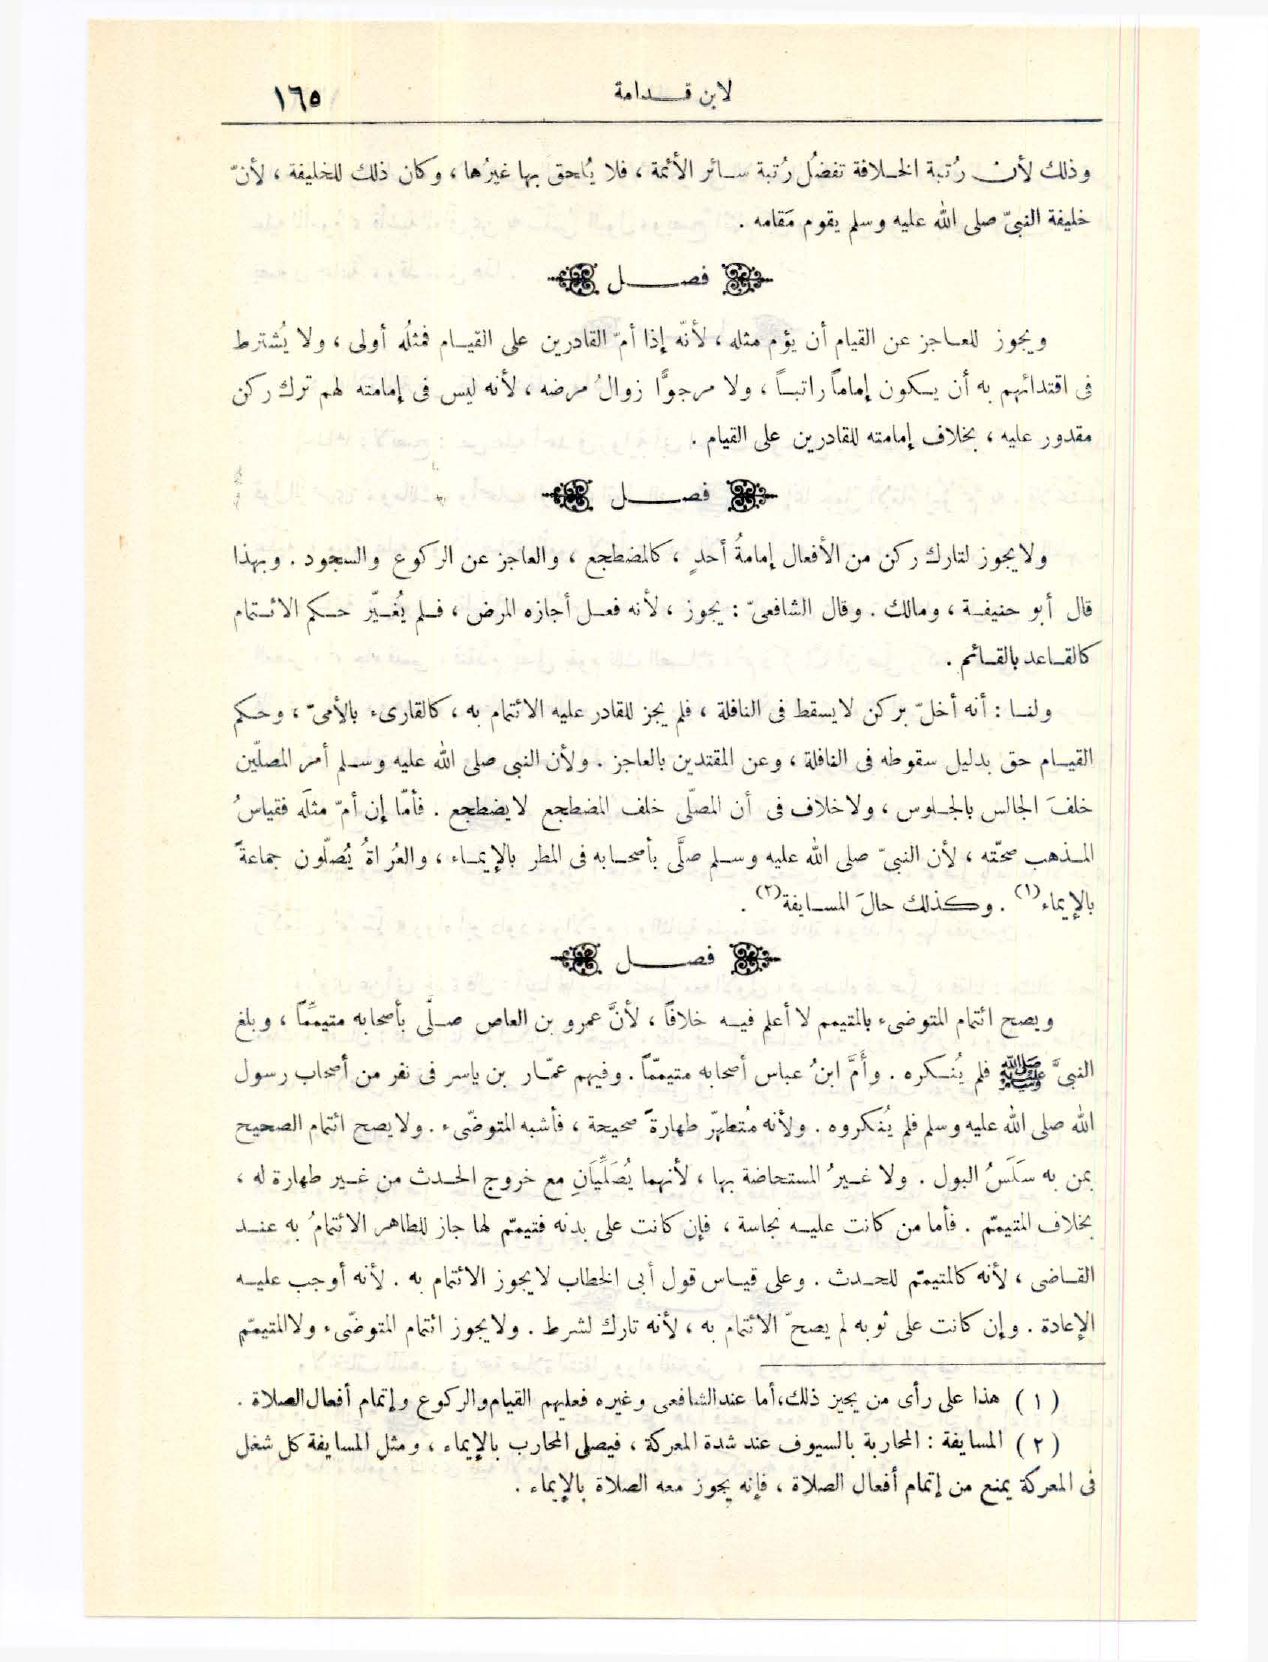 لابن قدامة
١٦٥
وذلك لأن رُتبة الخلافة تفضُل رُتبة سائر الأئمة ، فلا يُلحق بها غيرُها ، وكان ذلك للخليفة ، لأنّ
خليفة النبىّ صلى الله عليه وسلم يقوم مَقامه .
فصل
ويجوز للعاجز عن القيام أن يؤم مثله ، لأنّه إذا أمّ القادرين على القيام فمثلُه أولى ، ولا يُشترط
فى اقتدائهم به أن يكون إماماً راتباً ، ولا مرجوًّا زوالُ مرضه ، لأنه ليس فى إمامته لهم ترك ركن
مقدور عليه ، بخلاف إمامته للقادرين على القيام .
فصل
ولا يجوز لتارك ركن من الأفعال إمامةُ أحدٍ ، كالمضطجع ، والعاجز عن الركوع والسجود . وبهذا
قال أبو حنيفة ، ومالك . وقال الشافعىّ : يجوز ، لأنه فعل أجازه المرض ، فلم يُغيّر حكم الائتمام
كالقاعد بالقائم .
ولنا : أنه أخلّ بركن لا يسقط فى النافلة ، فلم يجز للقادر عليه الائتمام به ، كالقارىء بالأمىّ ، وحكم
القيام حق بدليل سقوطه فى النافلة ، وعن المقتدين بالعاجز . ولأن النبى صلى الله عليه وسلم أمر المصلّين
خلفَ الجالس بالجلوس ، ولا خلاف فى أن المصلّى خلف المضطجع لا يضطجع . فأمّا إن أمّ مثلَه فقياسُ
المذهب صحّته ، لأن النبىّ صلى الله عليه وسلم صلَّى بأصحابه فى المطر بالإيماء ، والعُراةُ يُصلّون جماعةً
بالإيماء(١) . وكذلك حالَ المسايفة(٢) .
فصل
ويصح ائتمام المتوضىء بالمتيمم لا أعلم فيه خلافًا ، لأنَّ عمرو بن العاص صلّى بأصحابه متيمِّمًا ، وبلغ
النبىَّ ﷺ فلم يُنكره . وأَمَّ ابنُ عباس أصحابه متيمّماً . وفيهم عمّار بن ياسر فى نفر من أصحاب رسول
الله صلى الله عليه وسلم فلم يُنكروه . ولأنه مُتطهِّر طهارةً صحيحة ، فأشبه المتوضّىء . ولا يصح ائتمام الصحيح
بمن به سَلَسُ البول . ولا غيرُ المستحاضة بها ، لأنهما يُصَلِّيَانِ مع خروج الحدث من غير طهارة له ،
بخلاف المتيمّم . فأما من كانت عليه نجاسة ، فإن كانت على بدنه فتيمّم لها جاز للطاهر الائتمامُ به عند
القاضى ، لأنه كالمتيمّم للحدث . وعلى قياس قول أبى الخطاب لا يجوز الائتمام به . لأنه أوجب عليه
الإعادة . وإن كانت على ثوبه لم يصحّ الائتمام به ، لأنه تارك لشرط . ولا يجوز ائتمام المتوضّىء ولا المتيمّم
(١) هذا على رأى من يجيز ذلك، أما عند الشافعى وغيره فعليهم القيام والركوع وإتمام أفعال الصلاة .
(٢) المسايفة : المحاربة بالسيوف عند شدة المعركة ، فيصلى المحارب بالإيماء ، ومثل المسايفة كل شغل
فى المعركة يمنع من إتمام أفعال الصلاة ، فإنه يجوز معه الصلاة بالإيماء .